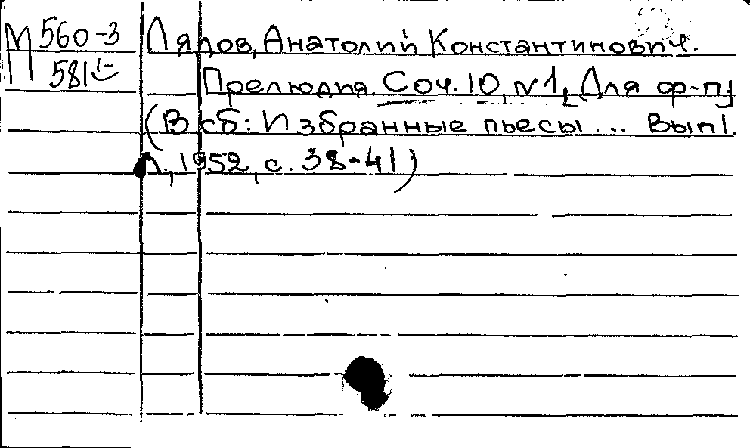 М 560-3 Лядов, Анатолий Константинович.
581 Прелюдия. Соч. 10, №1, Для ф-п]
(В сб: Избранные пьесы... Вып 1.
Л, 1952, с. 38-41)